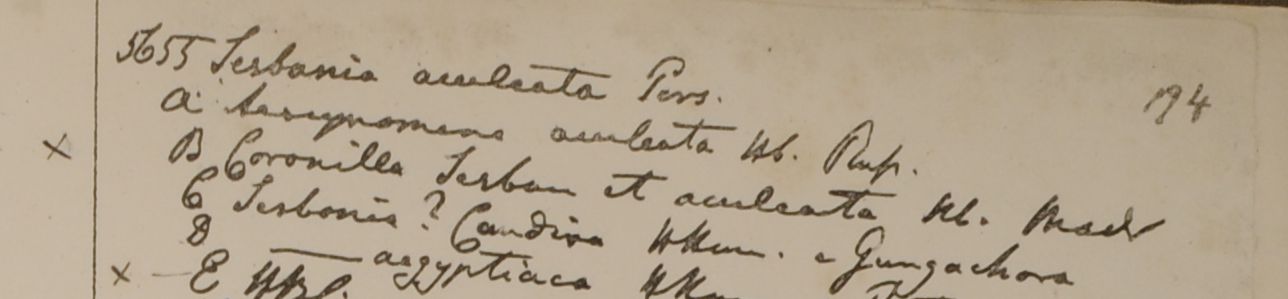 5655 Sesbania aculeata Pers.
194
a Aeschynomene aculeata Hb. Rup.
B Coronilla Sesban et aculeata Hb. Madr
C Sesbania? Candiva HHam. e Gungachora
D —— aegyptiaca HHam
E HBC.